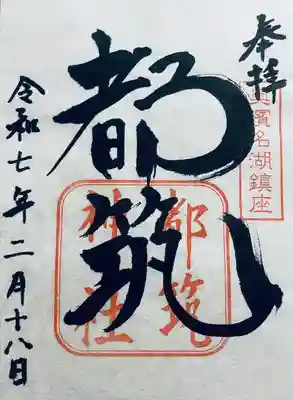 奉拝
奥浜名湖鎮座
都筑
都筑
神社
令和七年二月十八日